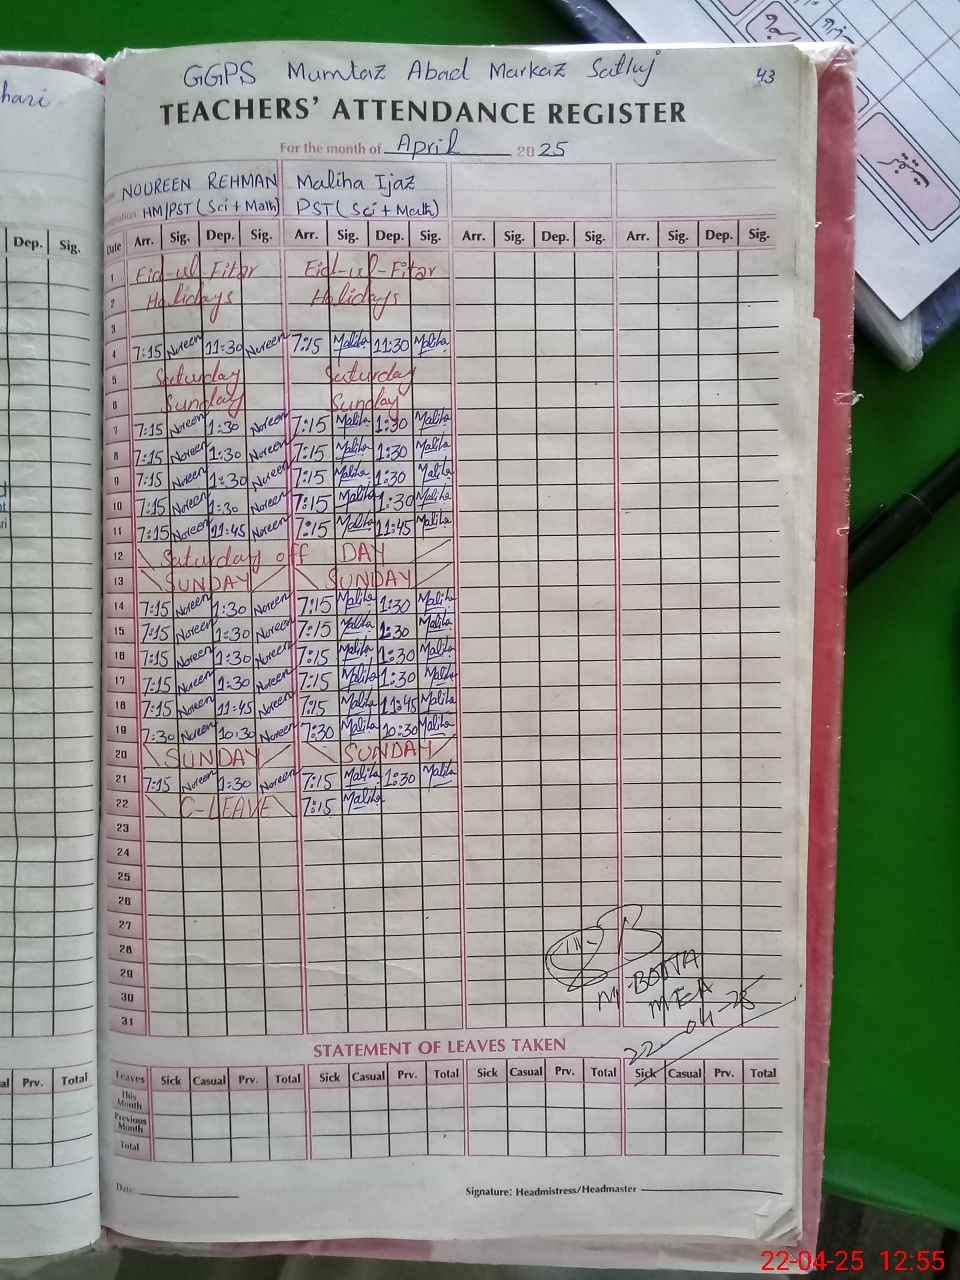 GGPS Mumtaz Abad Markaz Satluj 43
TEACHERS' ATTENDANCE REGISTER
For the month of April 2025
NOUREEN REHMAN Maliha Ijaz
HM/PST (Sci + Math) PST (Sci + Math)
Date Arr. Sig. Dep. Sig. Arr. Sig. Dep. Sig. Arr. Sig. Dep. Sig. Arr. Sig. Dep. Sig.
1 Eid-ul-Fitar Eid-ul-Fitar
2 Holidays Holidays
3
4 7:15 Noreen 11:30 Noreen 7:15 Maliha 11:30 Maliha
5 Saturday Saturday
6 Sunday Sunday
7 7:15 Noreen 1:30 Noreen 7:15 Maliha 1:30 Maliha
8 7:15 Noreen 1:30 Noreen 7:15 Maliha 1:30 Maliha
9 7:15 Noreen 1:30 Noreen 7:15 Maliha 1:30 Maliha
10 7:15 Noreen 1:30 Noreen 7:15 Maliha 1:30 Maliha
11 7:15 Noreen 11:45 Noreen 7:15 Maliha 11:45 Maliha
12 Saturday off DAY
13 SUNDAY SUNDAY
14 7:15 Noreen 1:30 Noreen 7:15 Maliha 1:30 Maliha
15 7:15 Noreen 1:30 Noreen 7:15 Maliha 1:30 Maliha
16 7:15 Noreen 1:30 Noreen 7:15 Maliha 1:30 Maliha
17 7:15 Noreen 1:30 Noreen 7:15 Maliha 1:30 Maliha
18 7:15 Noreen 11:45 Noreen 7:15 Maliha 11:45 Maliha
19 7:30 Noreen 10:30 Noreen 7:30 Maliha 10:30 Maliha
20 SUNDAY SUNDAY
21 7:15 Noreen 1:30 Noreen 7:15 Maliha 1:30 Maliha
22 C-LEAVE 7:15 Maliha
23
24
25
26
27
28
29
30
31
M-BOOTA
MEA
22-04-25
STATEMENT OF LEAVES TAKEN
Leaves Sick Casual Prv. Total Sick Casual Prv. Total Sick Casual Prv. Total Sick Casual Prv. Total
This Month
Previous Month
Total
Date:
Signature: Headmistress/Headmaster
hari
Dep. Sig.
Prv. Total
22-04-25 12:55